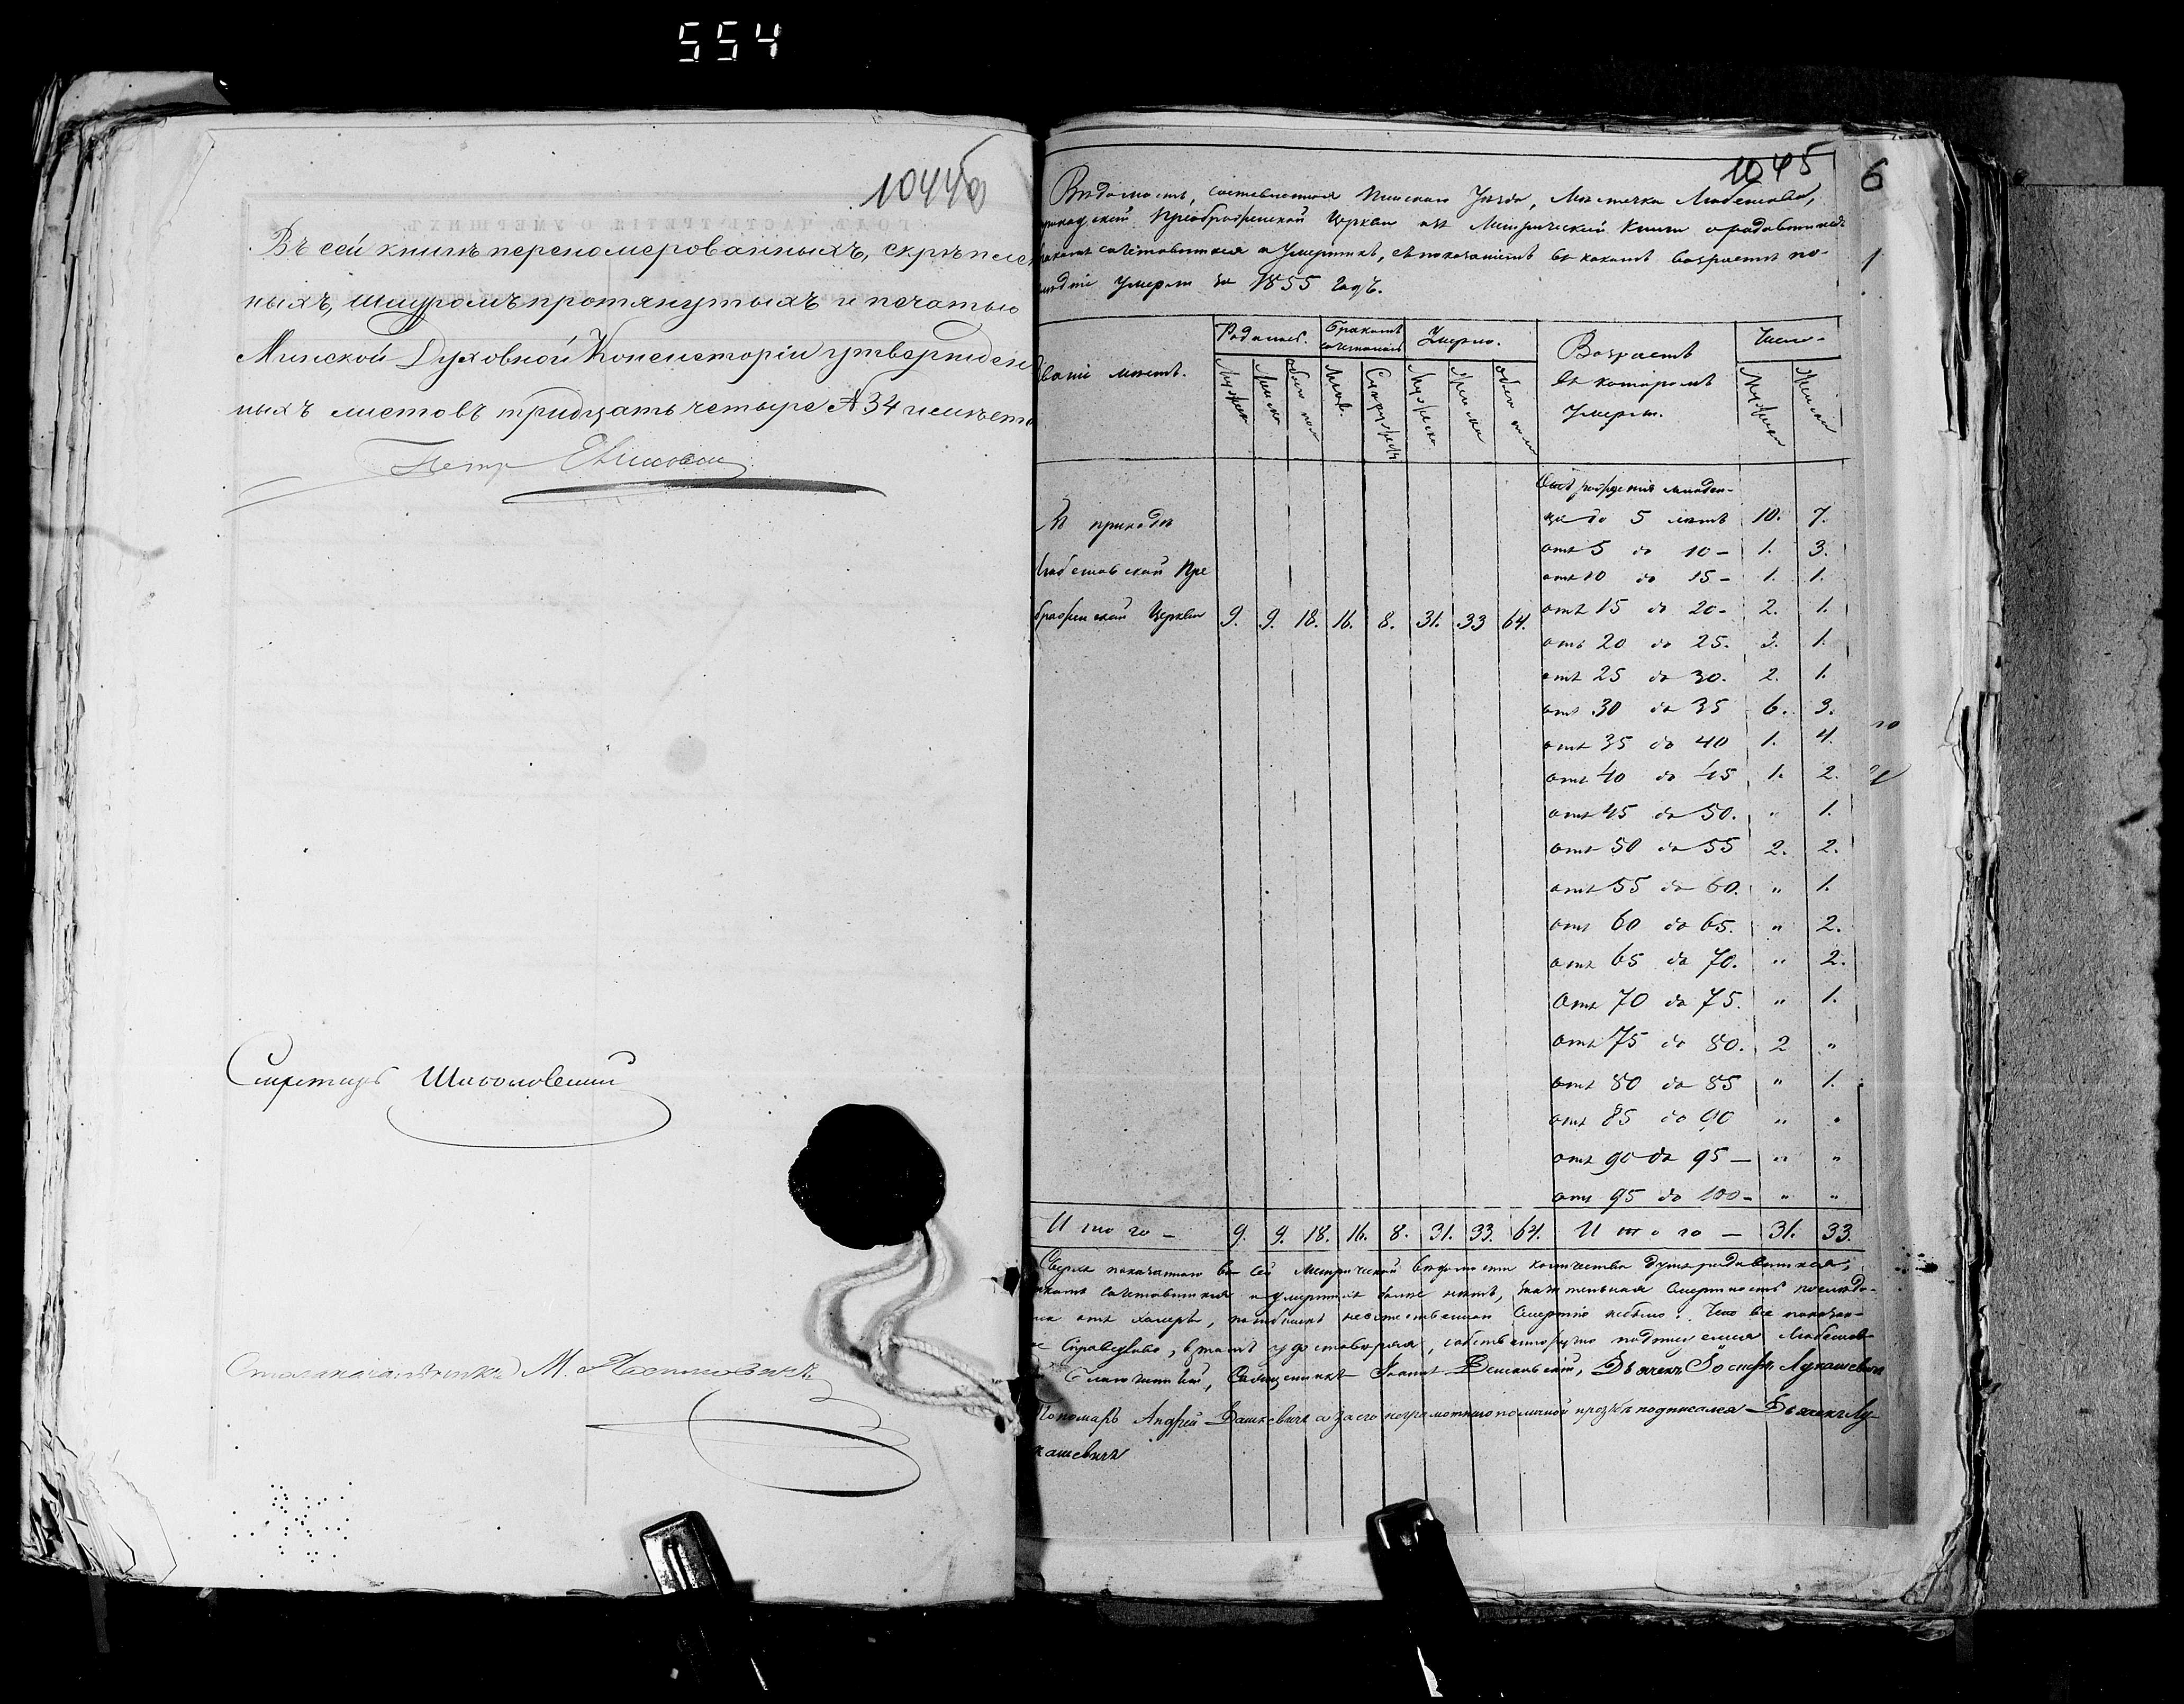 554
1044об
Въ сей книгѣ переномерованныхъ, скрѣплен
ныхъ, шнуромъ протянутыхъ и печатью
Минской Духовной Консисторіи утвержден
ныхъ листовъ тридцать четыре № 34 имѣет
Петр
Секретарь
Столоначальникъ М.
1045
6
Вѣдомость, составленная Пинскаго Уѣзда, Мѣстечка Любешова,
приходской Преображенской Церкви изъ Метрической Книги о родившихся
бракомъ сочетавшихся и Умершихъ, съ показаніемъ въ какомъ возрастѣ по-
слѣдніе умерли за 1855 Годъ.
1
Званіе мѣстъ.
Родилось.
Бракомъ сочеталось
Умерло.
Возрастъ въ которомъ Умерли.
Число.
Мужеска Женска обоего пола
Супружествъ
Мужеска Женска обоего пола
Мужеска Женска
Отъ рожденія младен-
въ приходѣ
це до 5 лѣтъ 10. 7.
отъ 5 до 10 – 1. 3.
Любешовской Пре
отъ 10 до 15 – 1. 1.
ображенской Церкви 9. 9. 18. 16. 8. 31. 33 64.
отъ 15 до 20 – 2. 1.
отъ 20 до 25. 3. 1.
отъ 25 до 30. 2. 1.
отъ 30 до 35 6. 3.
отъ 35 до 40 1. 4.
отъ 40 до 45 1. 2.
отъ 45 до 50. " 1.
отъ 50 до 55 2. 2.
отъ 55 до 60. " 1.
отъ 60 до 65. " 2.
отъ 65 до 70. " 2.
Отъ 70 до 75. " 1.
отъ 75 до 80. 2 "
отъ 80 до 85 " 1.
отъ 85 до 90 " "
отъ 90 до 95 – " "
отъ 95 до 100 – " "
Итого – 9. 9. 18. 16. 8. 31. 33. 64. Итого – 31. 33.
Сверхъ показаннаго въ сей Метрической вѣдомости количества душъ родившихся,
бракомъ сочетавшихся и умершихъ болѣе нѣтъ, значительная Смертность послѣдо-
отъ холеры, погибшихъ неестественною Смертію небыло. Что все показан-
ое Справедливо, въ томъ удостовѣряя, собственноручно подписуемся Любешов-
Благочинный, Священникъ Іоаннъ Дьячекъ Іосифъ Лукашевичъ
Пономарь Андрей Дашкевичъ а за его неграмотнаго по личной прозьбѣ подписался Дьячекъ Лу-
кашевичъ